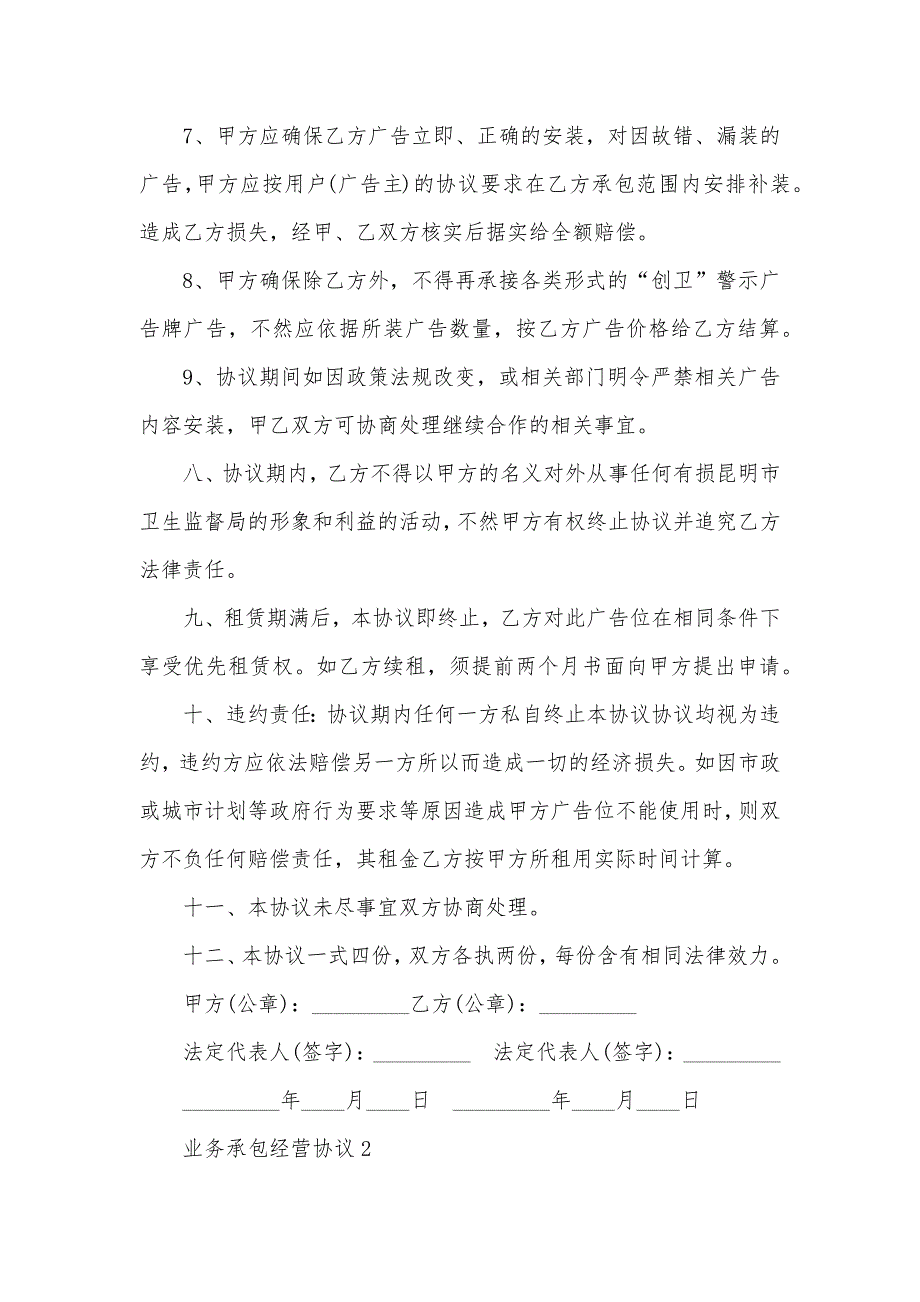 7、甲方应确保乙方广告立即、正确的安装，对因故错、漏装的
广告，甲方应按用户(广告主)的协议要求在乙方承包范围内安排补装。
造成乙方损失，经甲、乙双方核实后据实给全额赔偿。
8、甲方确保除乙方外，不得再承接各类形式的“创卫”警示广
告牌广告，不然应依据所装广告数量，按乙方广告价格给乙方结算。
9、协议期间如因政策法规改变，或相关部门明令严禁相关广告
内容安装，甲乙双方可协商处理继续合作的相关事宜。
八、协议期内，乙方不得以甲方的名义对外从事任何有损昆明市
卫生监督局的形象和利益的活动，不然甲方有权终止协议并追究乙方
法律责任。
九、租赁期满后，本协议即终止，乙方对此广告位在相同条件下
享受优先租赁权。如乙方续租，须提前两个月书面向甲方提出申请。
十、违约责任：协议期内任何一方私自终止本协议协议均视为违
约，违约方应依法赔偿另一方所以而造成一切的经济损失。如因市政
或城市计划等政府行为要求等原因造成甲方广告位不能使用时，则双
方不负任何赔偿责任，其租金乙方按甲方所租用实际时间计算。
十一、本协议未尽事宜双方协商处理。
十二、本协议一式四份，双方各执两份，每份含有相同法律效力。
甲方(公章)：_________乙方(公章)：_________
法定代表人(签字)：_________ 法定代表人(签字)：_________
_________年____月____日 _________年____月____日
业务承包经营协议 2